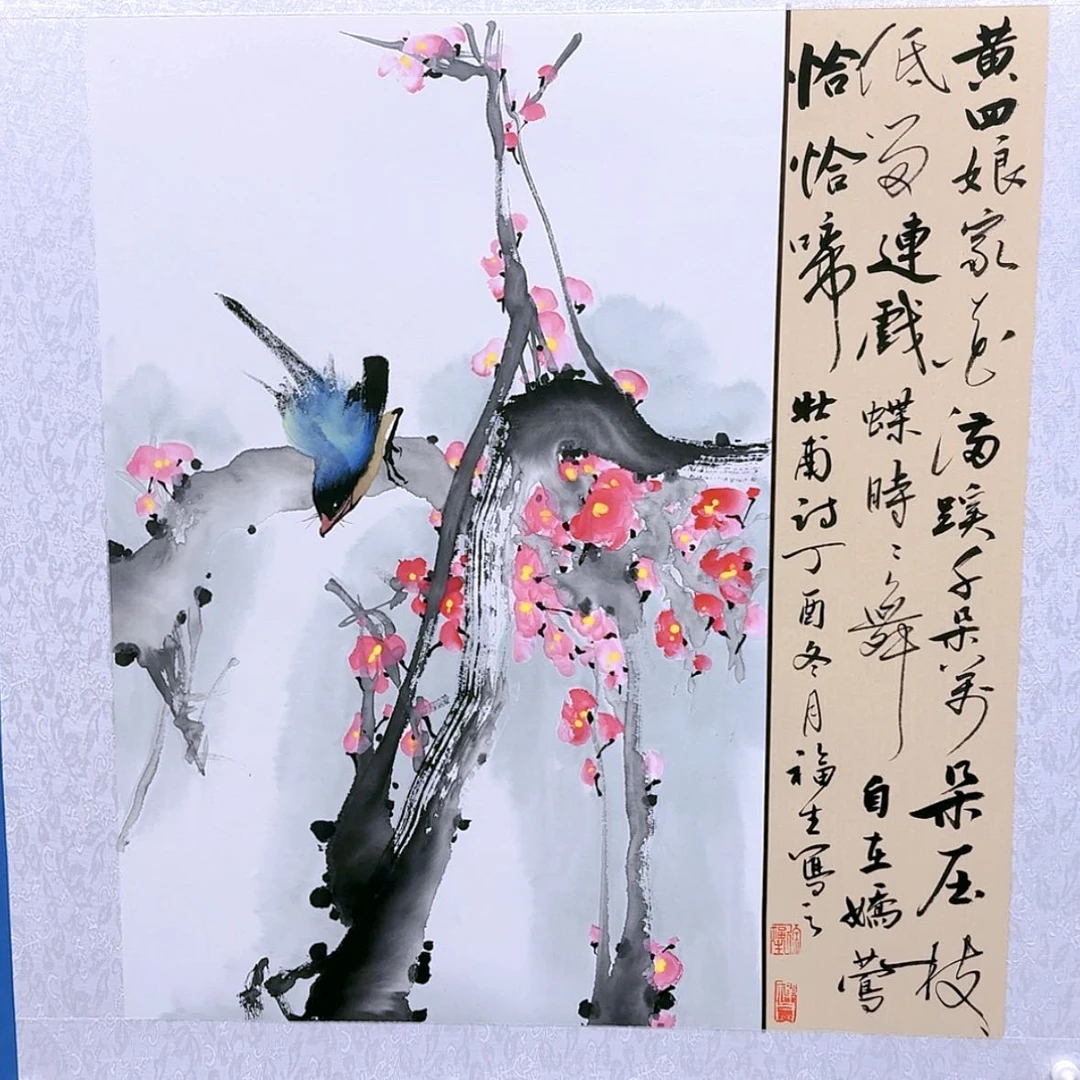 黄四娘家花满蹊千朵萬朵压枝
低留連戲蝶時〻舞自在嬌莺
恰恰啼杜甫诗丁酉冬月福生写之